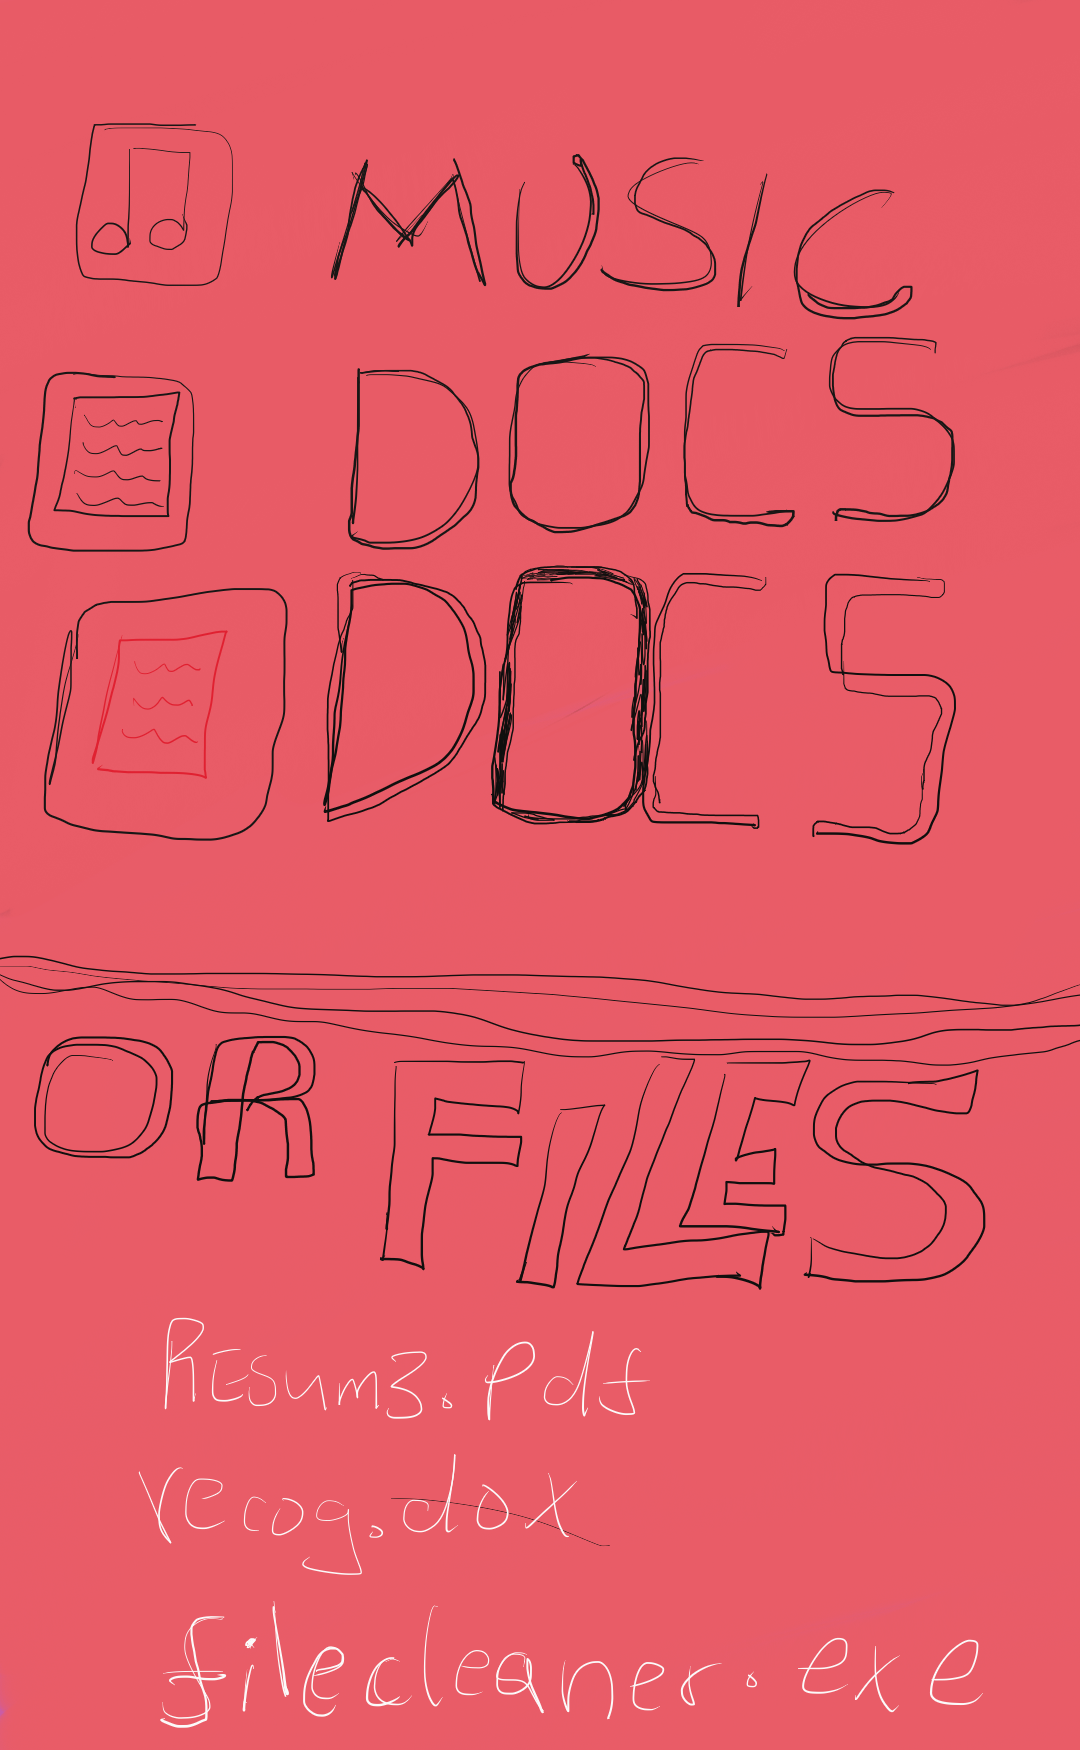 MUSIC
DOCS
DOCS
OR FILES
Resum3.pdf
recog.dox
filecleaner.exe